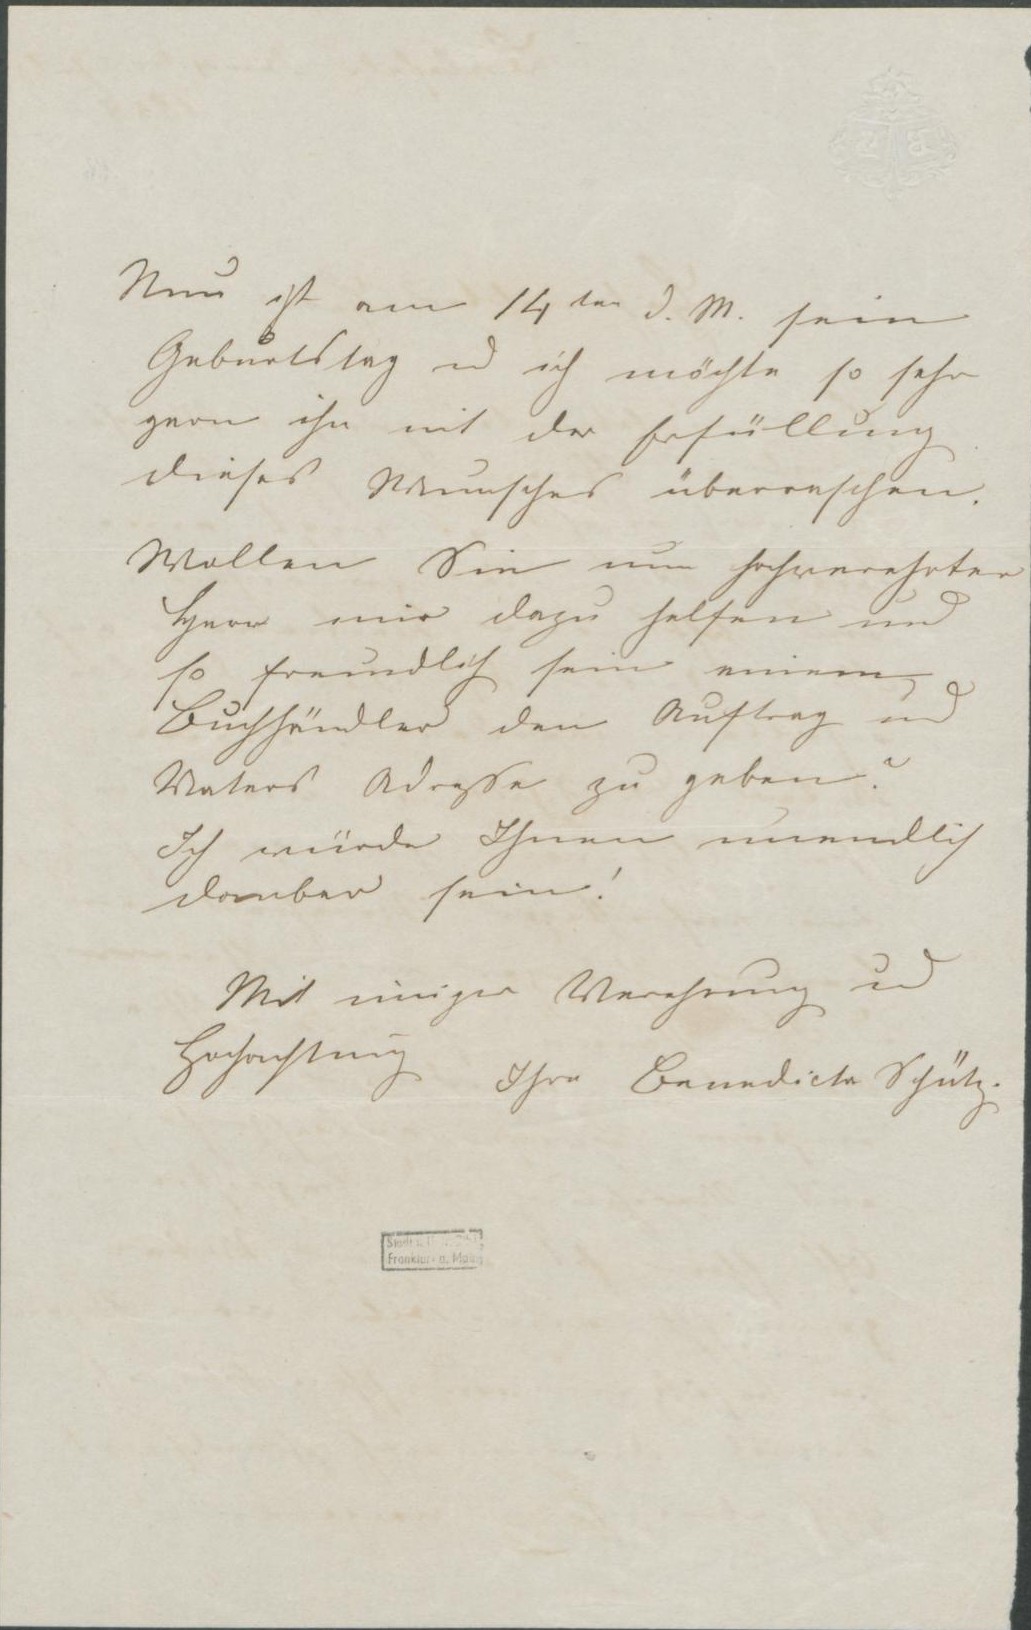 Nun ist am 14ten d. M. sein
Geburtstag u ich möchte so sehr
gern ihn mit der Erfüllung
dieses Wunsches überraschen.
Wollen Sie nun hochverehrter
Herr mir dazu helfen und
so freundlich sein einem
Buchhändler den Auftrag und
Vaters Adresse zu geben?
Ich würde Ihnen unendlich
dankbar sein!
Mit inniger Verehrung u
Hochachtung
Ihre Benedicta Schütz.
Frankfurt a. Main